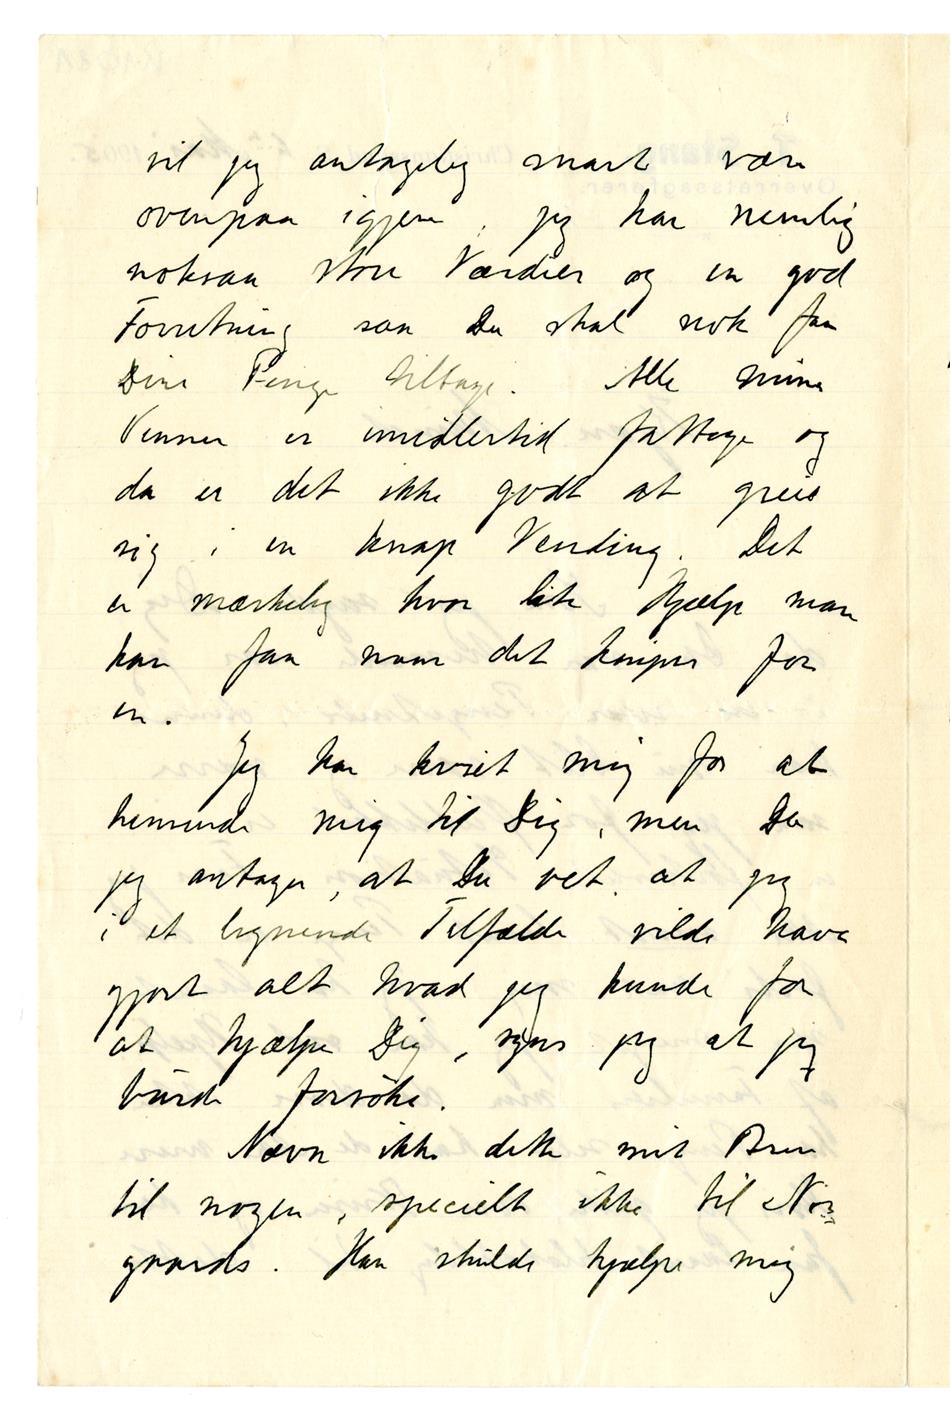 vil jeg antagelig snart være
ovenpaa igjen, jeg har nemlig
noksaa store Værdier og en god
Forretning saa Du skal nok faa
Dine Penge tilbage. Alle mine
Venner er imidlertid fattige og
da er det ikke godt at greie
sig i en knap Vending. Det
er mærkelig hvor lite Hjælp man
kan faa naar det kniper for
en.
Jeg har kviet mig for at
henvende mig til Dig, men Da
jeg antager, at Du vet, at jeg
i et lignende Tilfælde vilde have
gjort alt hvad jeg kunde for
at hjælpe Dig, synes jeg at jeg
burde forsøke.
Nævn ikke dette mit Brev
til nogen, specielt ikke til Nor
gaards. Han skulde hjælpe mig